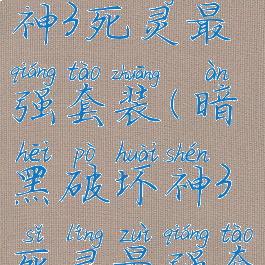 神3死灵最
qiáng tào zhuāng àn
强套装(暗
hēi pò huài shén
黑破坏神3
sǐ líng zuì qiáng tào
死灵最强套